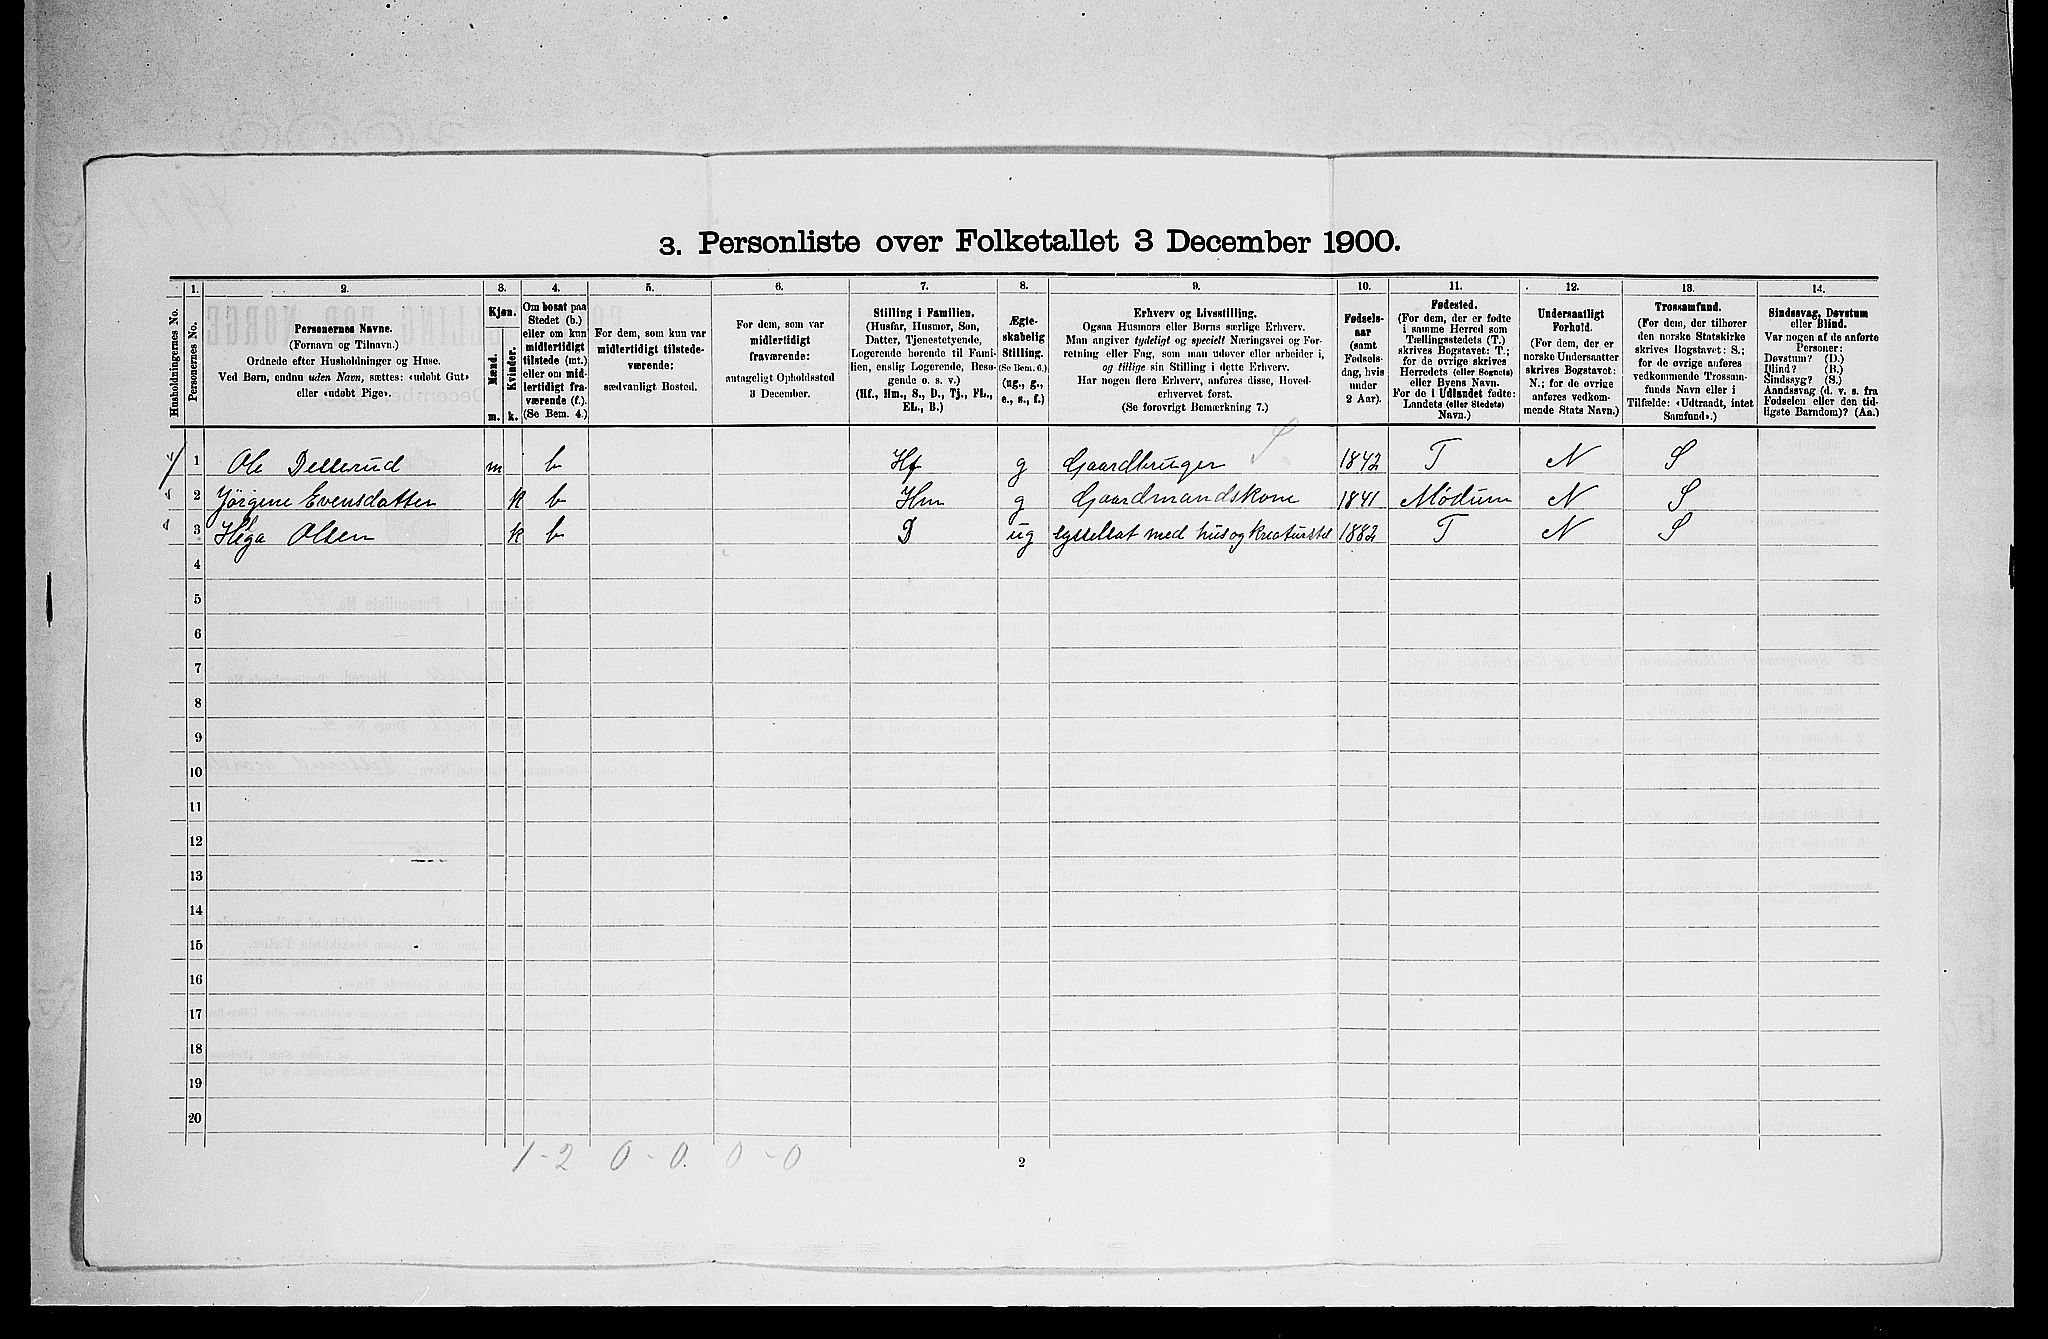 3. Personliste over Folketallet 3 December 1900.
1. 2. 3. 4. 5. 6. 7. 8. 9. 10. 11. 12. 13. 14.
Husholdningernes No.
Personernes No.
Personernes Navne.
(Fornavn og Tilnavn.)
Ordnede efter Husholdninger og Huse.
Ved Børn, endnu uden Navn, sættes: «udøbt Gut»
eller «udøbt Pige».
Kjøn.
Mænd.
Kvinder.
m. k.
Om bosat paa
Stedet (b.)
eller om kun
midlertidigt
tilstede (mt.)
eller om mid-
lertidigt fra-
værende (f.).
(Se Bem. 4.)
For dem, som kun var
midlertidigt tilstede-
værende:
sædvanligt Bosted.
For dem, som var
midlertidigt
fraværende:
antageligt Opholdssted
3 December.
Stilling i Familien.
(Husfar, Husmor, Søn,
Datter, Tjenestetyende,
Logerende hørende til Fami-
lien, enslig Logerende, Besø-
gende o. s. v.)
(Hf., Hm., S., D., Tj., FL.,
EL., B.)
Ægte-
skabelig
Stilling.
(Se Bem. 6.)
(ug., g.,
e., s., f.)
Erhverv og Livsstilling.
Ogsaa Husmors eller Børns særlige Erhverv.
Man angiver tydeligt og specielt Næringsvei og For-
retning eller Fag, som man udøver eller arbeider i,
og tillige sin Stilling i dette Erhverv.
Har nogen flere Erhverv, anføres disse, Hoved-
erhvervet først.
(Se forøvrigt Bemærkning 7.)
Fødsels-
aar
(samt
Fødsels-
dag, hvis
under
2 Aar).
Fødested.
(For dem, der er fødte
i samme Herred som
Tællingsstedets (T.)
skrives Bogstavet: T.;
for de øvrige skrives
Herredets (eller Sognets)
eller Byens Navn.
For de i Udlandet fødte:
Landets (eller Stedets)
Navn.)
Undersaatligt
Forhold.
(For dem, der er
norske Undersaatter
skrives Bogstavet:
N.; for de øvrige
anføres vedkom-
mende Stats Navn.)
Trossamfund.
(For dem, der tilhører
den norske Statskirke
skrives Bogstavet: S.;
for de øvrige anføres
vedkommende Trossam-
funds Navn eller i
Tilfælde: «Udtraadt, intet
Samfund».)
Sindssvag, Døvstum
eller Blind.
Var nogen af de anførte
Personer:
Døvstum? (D.)
Blind? (B.)
Sindssyg? (S.)
Aandssvag (d. v. s. fra
Fødselen eller den tid-
ligste Barndom)? (Aa.)
S
1 Ole Dellerud m b Hf g Gaardbruger 1842 T N S
2 Jørgene Evensdatter k b Hm g Gaardmandskone 1841 Modum N S
3 Helga Olsen k b D ug syssellsat med hus og kreaturstel 1882 T N S
4
5
6
7
8
9
10
11
12
13
14
15
16
17
18
19
20
1-2 0-0. 0-0
2